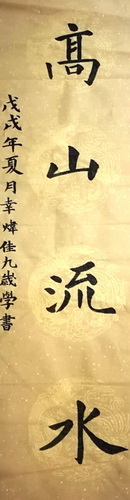 高山流水
戊戌年夏月幸煒佳九歲學書